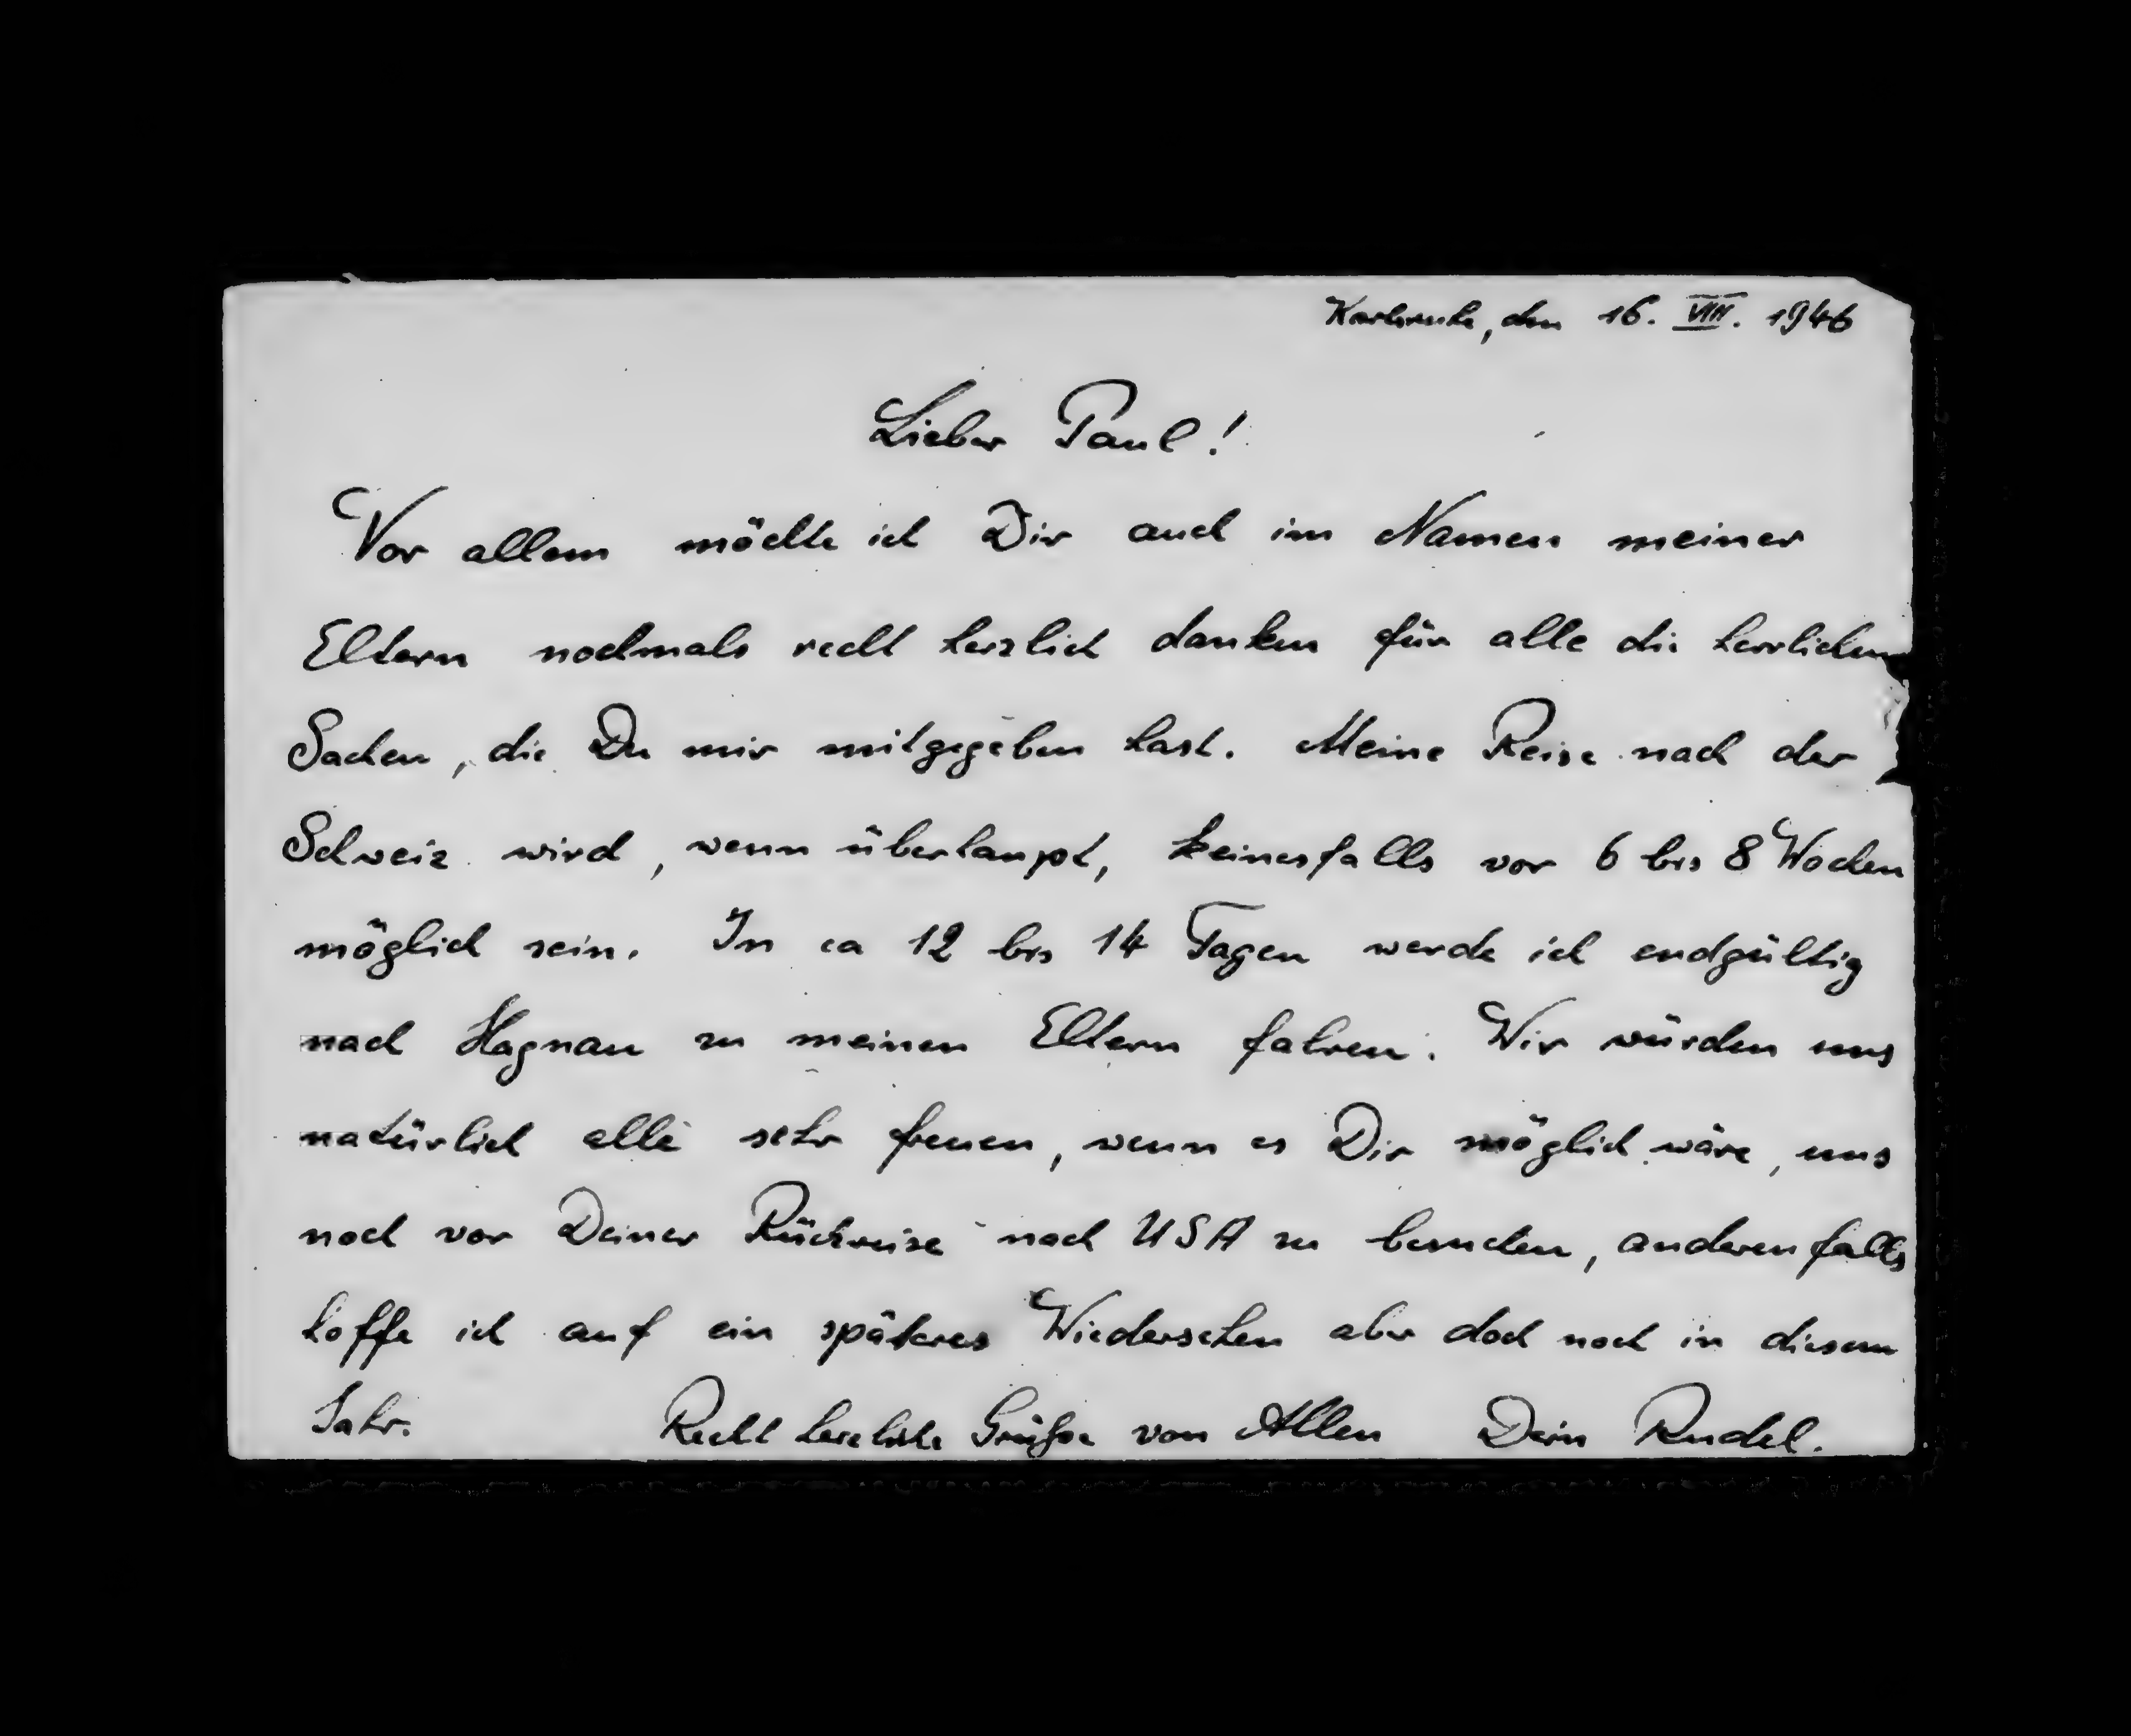 Karlsruhe, den 16. VIII. 1946
Lieber Paul!
Vor allem möchte ich Dir auch im Namen meiner
Eltern nochmals recht herzlich danken für alle die herrlichen
Sachen, die Du mir mitgegeben hast. Meine Reise nach der
Schweiz wird, wenn überhaupt, keinesfalls vor 6 bis 8 Wochen
möglich sein. In ca 12 bis 14 Tagen werde ich endgültig
nach Hagnau zu meinen Eltern fahren. Wir würden uns
natürlich alle sehr freuen, wenn es Dir möglich wäre, uns
noch vor Deiner Rückreise nach USA zu besuchen, anderenfalls
hoffe ich auf ein späteres Wiedersehen aber doch noch in diesem
Jahr. Recht herzliche Grüße von Allen Dein Rudel.